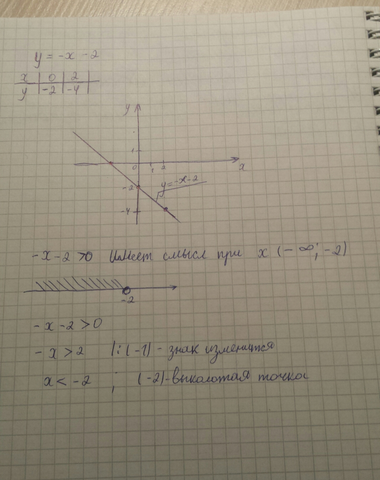 y = -x - 2
x | 0 | 2 |
y | -2 | -4 |
y
1
0 1 2 x
-2
y=-x-2
-4
-x-2 >0 Имеет смысл при x (-∞; -2)
-2
-x-2>0
-x>2 |:(-1) - знак изменится
x< -2 ; (-2)-выколотая точка